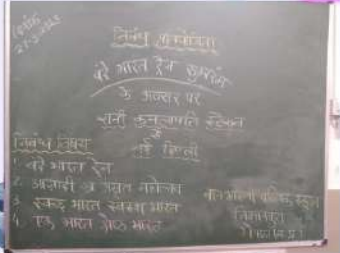 दिनांक
निबंध प्रतियोगिता
वंदे भारत ट्रेन शुभारंभ
के अवसर पर
रानी कमलापति स्टेशन
से
नई दिल्ली
निबंध विषय
1. वंदे भारत ट्रेन
2. आज़ादी का अमृत महोत्सव
3. स्वच्छ भारत स्वस्थ भारत
4. एक भारत श्रेष्ठ भारत